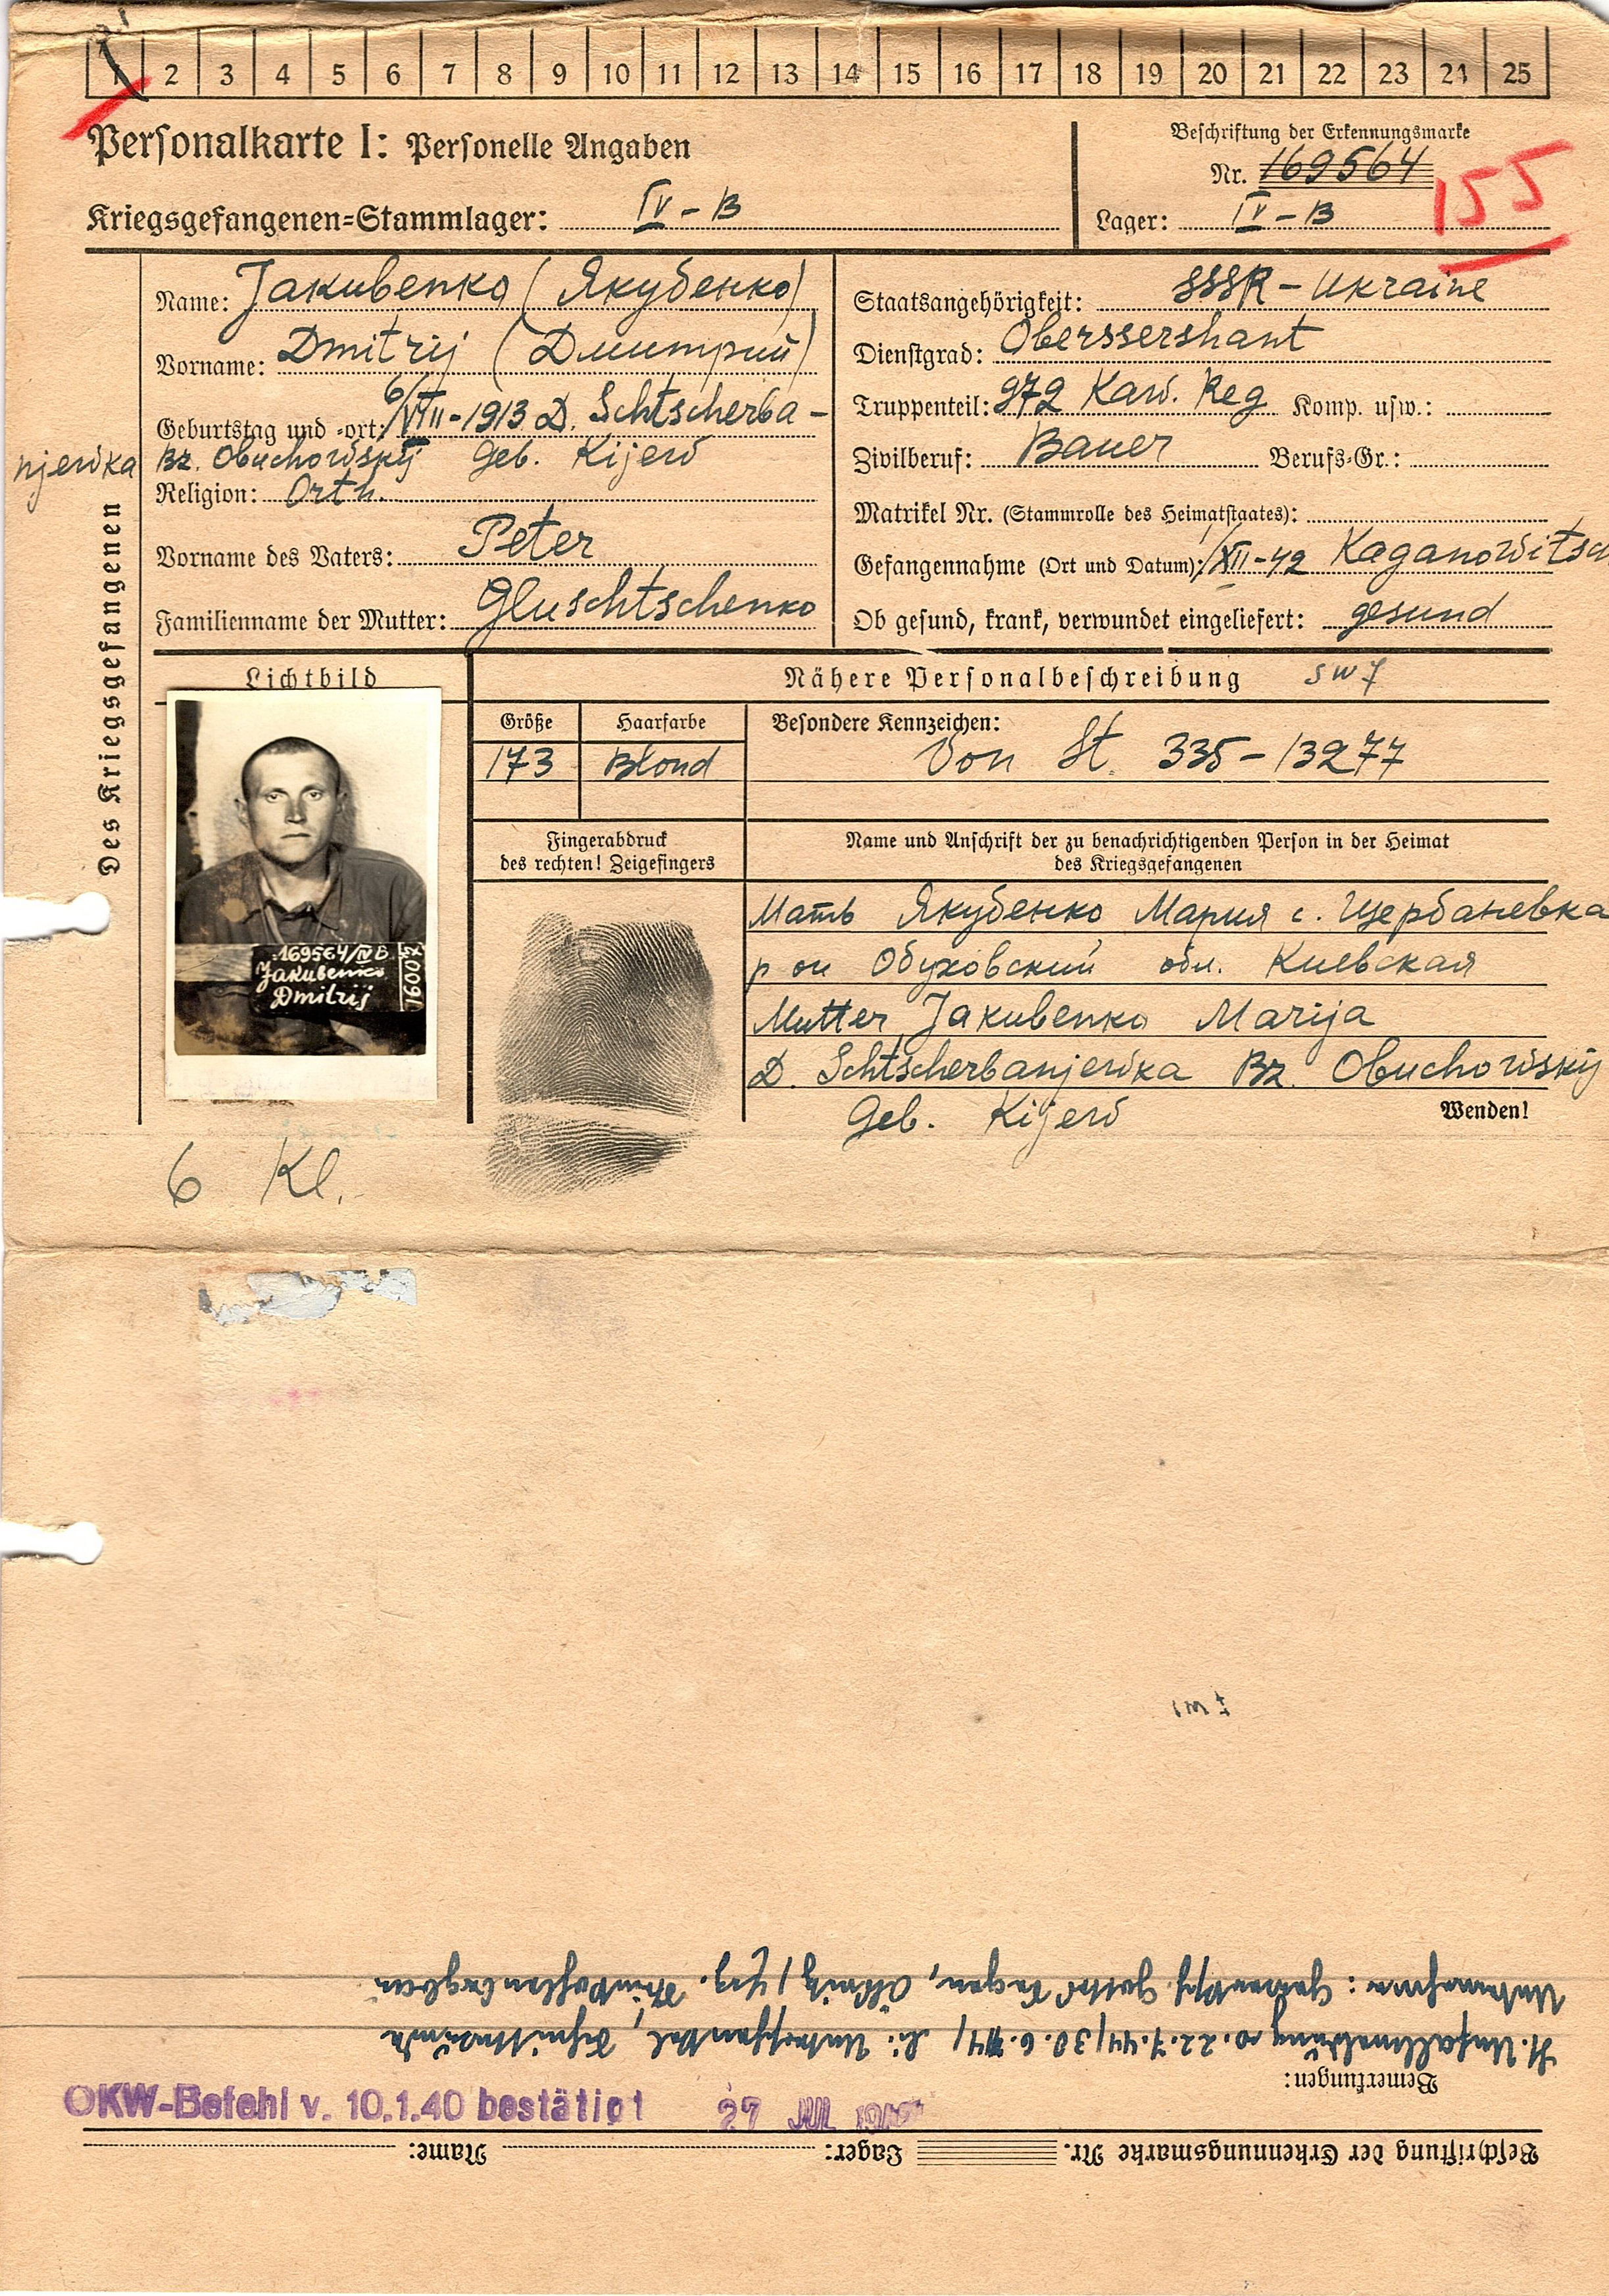 1 2 3 4 5 6 7 8 9 10 11 12 13 14 15 16 17 18 19 20 21 22 23 24 25
Personalkarte I: Personelle Angaben
Kriegsgefangenen-Stammlager: IV-B
Beschriftung der Erkennungsmarke
Nr. 169564
155
Lager: IV-B
Des Kriegsgefangenen
Name: Jakubenko (Якубенко)
Vorname: Dmitrij (Дмитрий)
Geburtstag und -ort: 6/VIII-1913 D. Schtscherba-
njewka Bz. Obuchowskij Geb. Kijew
Religion: Orth.
Vorname des Vaters: Peter
Familienname der Mutter: Gluschtschenko
Staatsangehörigkeit: SSSR-Ukraine
Dienstgrad: Oberssershant
Truppenteil: 972 Kaw. Reg Komp. usw.:
Zivilberuf: Bauer Berufs-Gr.:
Matrikel Nr. (Stammrolle des Heimatstaates):
Gefangennahme (Ort und Datum): /XII-42 Kaganowitsch
Ob gesund, krank, verwundet eingeliefert: gesund
Lichtbild
169564/IV B
Jakubenko
Dmitrij
16007
Nähere Personalbeschreibung
Größe Haarfarbe Besondere Kennzeichen:
173 Blond Von St. 335-13277
Fingerabdruck
des rechten! Zeigefingers
Name und Anschrift der zu benachrichtigenden Person in der Heimat
des Kriegsgefangenen
Мать Якубенко Мария с. Щербаневка
р он Обуховский обл. Киевская
Mutter Jakubenko Marija
D. Schtscherbanjewka Bz. Obuchowskij
Geb. Kijew
Wenden!
6 Kl.
Beschriftung der Erkennungsmarke Nr. Lager: Name:
OKW-Befehl v. 10.1.40 bestätigt 27 JUL
Bemerkungen:
lt. Unfallmeldung v. 22.7.44/30.6.44/ li. Unterschenkel, Schnittwunde